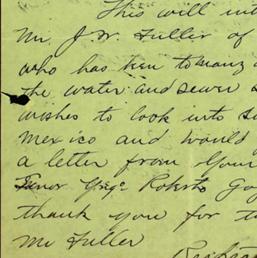 This will
Mr. J. W. Fuller of
who has been to many
the water and sewer
wishes to look into
Mexico and would
a letter from your
Roberto
thank you for
Mr Fuller